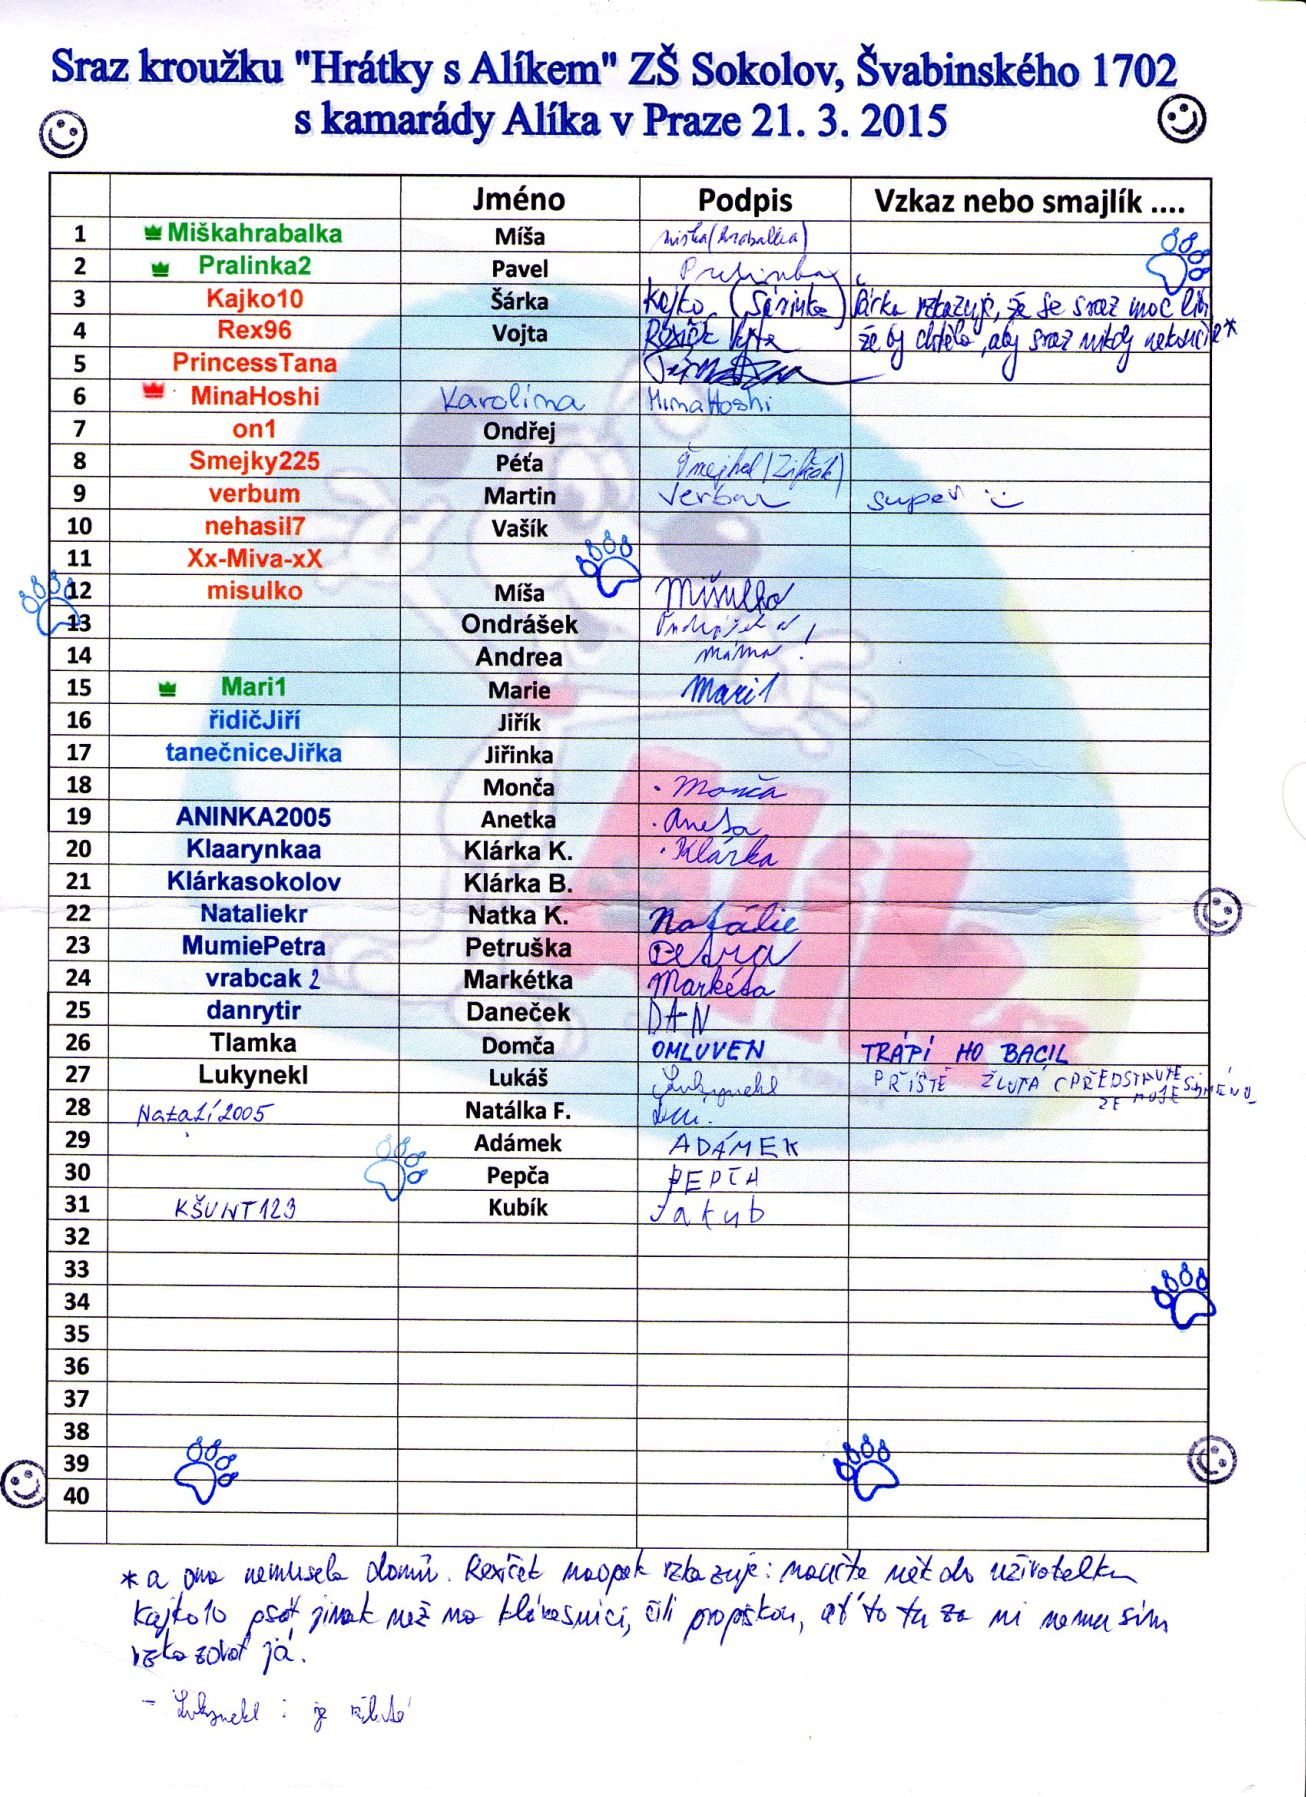 Sraz kroužku "Hrátky s Alíkem" ZŠ Sokolov, Švabinského 1702
s kamarády Alíka v Praze 21. 3. 2015
Jméno Podpis Vzkaz nebo smajlík ....
1 Miškahrabalka Míša miška(hrabalka)
2 Pralinka2 Pavel Pralinka
3 Kajko10 Šárka Kajko (Šárinka) Šárka vzkazuje, že se sraz moc líbí
4 Rex96 Vojta Rexíček Vojta že by chtěla, aby sraz nikdy nekončil*
5 PrincessTana
6 MinaHoshi Karolína MinaHoshi
7 on1 Ondřej
8 Smejky225 Péťa
9 verbum Martin Verbum super :-)
10 nehasil7 Vašík
11 Xx-Miva-xX
12 misulko Míša Mišulko
13 Ondrášek Ondrášek a
14 Andrea máma!
15 Mari1 Marie Mari1
16 řidičJiří Jiřík
17 tanečniceJiřka Jiřinka
18 Monča Monča
19 ANINKA2005 Anetka Aneta
20 Klaarynkaa Klárka K. Klárka
21 Klárkasokolov Klárka B.
22 Nataliekr Natka K. Natálie
23 MumiePetra Petruška Petra
24 vrabcak 2 Markétka Markéta
25 danrytir Daneček DAN
26 Tlamka Domča OMLUVEN TRÁPÍ HO BACIL
27 Lukynekl Lukáš Lukynekl PŘÍŠTĚ ŽLUTÁ (PŘEDSTAVTE SI ŽE MOJE JMÉNO
28 Natalí2005 Natálka F.
29 Adámek ADÁMEK
30 Pepča PEPČA
31 KŠUNT123 Kubík Jakub
32
33
34
35
36
37
38
39
40
* a ona nemusela domů. Rexíček naopak vzkazuje: naučte někdo uživatelku
Kajko10 psát jinak než na klávesnici, čili propiskou, ať to tu za ni nemusím
vzkazovat já.
- Lukynekl : je žlutá
Alík